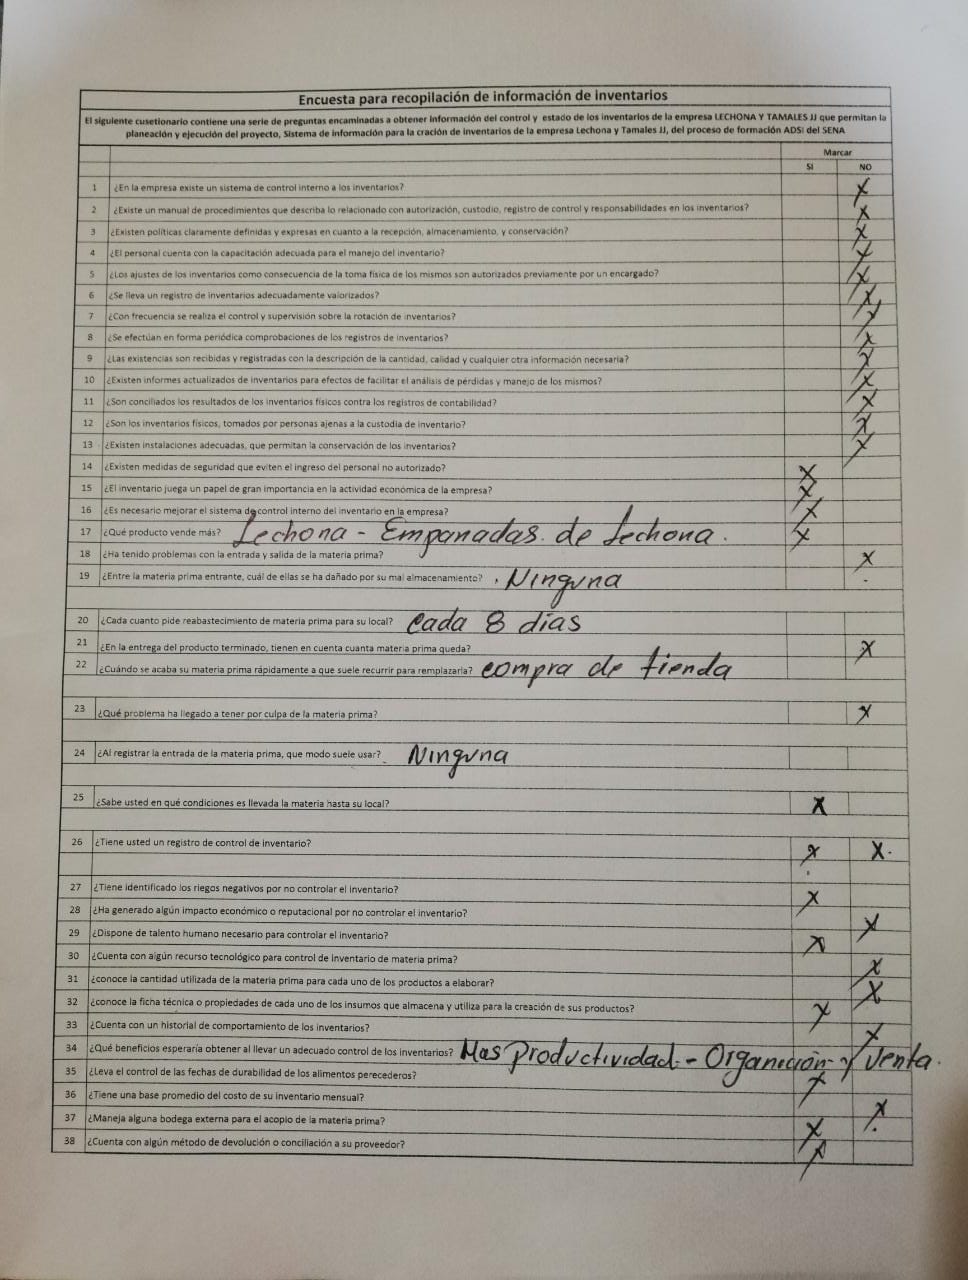 Encuesta para recopilación de información de inventarios
El siguiente cusetionario contiene una serie de preguntas encaminadas a obtener información del control y estado de los inventarios de la empresa LECHONA Y TAMALES JJ que permitan la
planeación y ejecución del proyecto, Sistema de información para la cración de inventarios de la empresa Lechona y Tamales JJ, del proceso de formación ADSI del SENA
Marcar
SI NO
1 ¿En la empresa existe un sistema de control interno a los inventarios? X
2 ¿Existe un manual de procedimientos que describa lo relacionado con autorización, custodio, registro de control y responsabilidades en los inventarios? X
3 ¿Existen políticas claramente definidas y expresas en cuanto a la recepción, almacenamiento, y conservación? X
4 ¿El personal cuenta con la capacitación adecuada para el manejo del inventario? X
5 ¿Los ajustes de los inventarios como consecuencia de la toma física de los mismos son autorizados previamente por un encargado? X
6 ¿Se lleva un registro de inventarios adecuadamente valorizados? X
7 ¿Con frecuencia se realiza el control y supervisión sobre la rotación de inventarios? X
8 ¿Se efectúan en forma periódica comprobaciones de los registros de inventarios? X
9 ¿Las existencias son recibidas y registradas con la descripción de la cantidad, calidad y cualquier otra información necesaria? X
10 ¿Existen informes actualizados de inventarios para efectos de facilitar el análisis de pérdidas y manejo de los mismos? X
11 ¿Son conciliados los resultados de los inventarios físicos contra los registros de contabilidad? X
12 ¿Son los inventarios físicos, tomados por personas ajenas a la custodia de inventario? X
13 ¿Existen instalaciones adecuadas, que permitan la conservación de los inventarios? X
14 ¿Existen medidas de seguridad que eviten el ingreso del personal no autorizado? X
15 ¿El inventario juega un papel de gran importancia en la actividad económica de la empresa? X
16 ¿Es necesario mejorar el sistema de control interno del inventario en la empresa? X
17 ¿Qué producto vende más? Lechona - Empanadas. de Lechona. X
18 ¿Ha tenido problemas con la entrada y salida de la materia prima? X
19 ¿Entre la materia prima entrante, cuál de ellas se ha dañado por su mal almacenamiento? Ninguna
20 ¿Cada cuanto pide reabastecimiento de materia prima para su local? Cada 8 días
21 ¿En la entrega del producto terminado, tienen en cuenta cuanta materia prima queda? X
22 ¿Cuándo se acaba su materia prima rápidamente a que suele recurrir para remplazarla? compra de tienda
23 ¿Qué problema ha llegado a tener por culpa de la materia prima? X
24 ¿Al registrar la entrada de la materia prima, que modo suele usar? Ninguna
25 ¿Sabe usted en qué condiciones es llevada la materia hasta su local? X
26 ¿Tiene usted un registro de control de inventario? X X.
27 ¿Tiene identificado los riegos negativos por no controlar el inventario? X
28 ¿Ha generado algún impacto económico o reputacional por no controlar el inventario? X
29 ¿Dispone de talento humano necesario para controlar el inventario? X
30 ¿Cuenta con algún recurso tecnológico para control de inventario de materia prima? X
31 ¿conoce la cantidad utilizada de la materia prima para cada uno de los productos a elaborar? X
32 ¿conoce la ficha técnica o propiedades de cada uno de los insumos que almacena y utiliza para la creación de sus productos? X
33 ¿Cuenta con un historial de comportamiento de los inventarios? X
34 ¿Qué beneficios esperaría obtener al llevar un adecuado control de los inventarios? Mas Productividad - Organición - y Venta.
35 ¿Leva el control de las fechas de durabilidad de los alimentos perecederos? X
36 ¿Tiene una base promedio del costo de su inventario mensual? X
37 ¿Maneja alguna bodega externa para el acopio de la materia prima? X
38 ¿Cuenta con algún método de devolución o conciliación a su proveedor? X